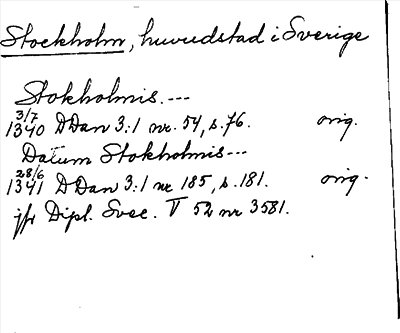 Stockholm, huvudstad i Sverige
Stokholmis. ---
3/7
1340 DDan 3:1 nr. 54, s. 76. orig.
Datum Stokholmis ---
28/6
1341 DDan 3:1 nr 185, s. 181. orig.
jfr Dipl. Svec. V 52 nr 3581.